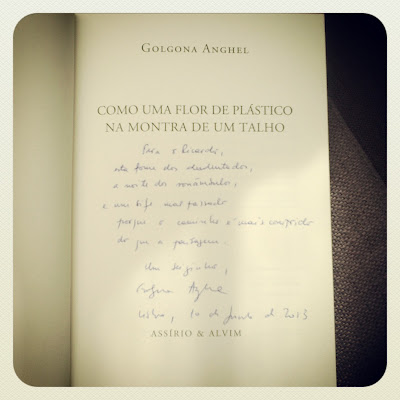 GOLGONA ANGHEL
COMO UMA FLOR DE PLÁSTICO
NA MONTRA DE UM TALHO
Para o Ricardo,
esta fome dos desdentados,
a noite dos sonâmbulos,
e um bife mal passado
porque o caminho é mais comprido
do que a paisagem.
Um beijinho,
Golgona Anghel
Lisboa, 10 de Junho de 2013
ASSÍRIO & ALVIM